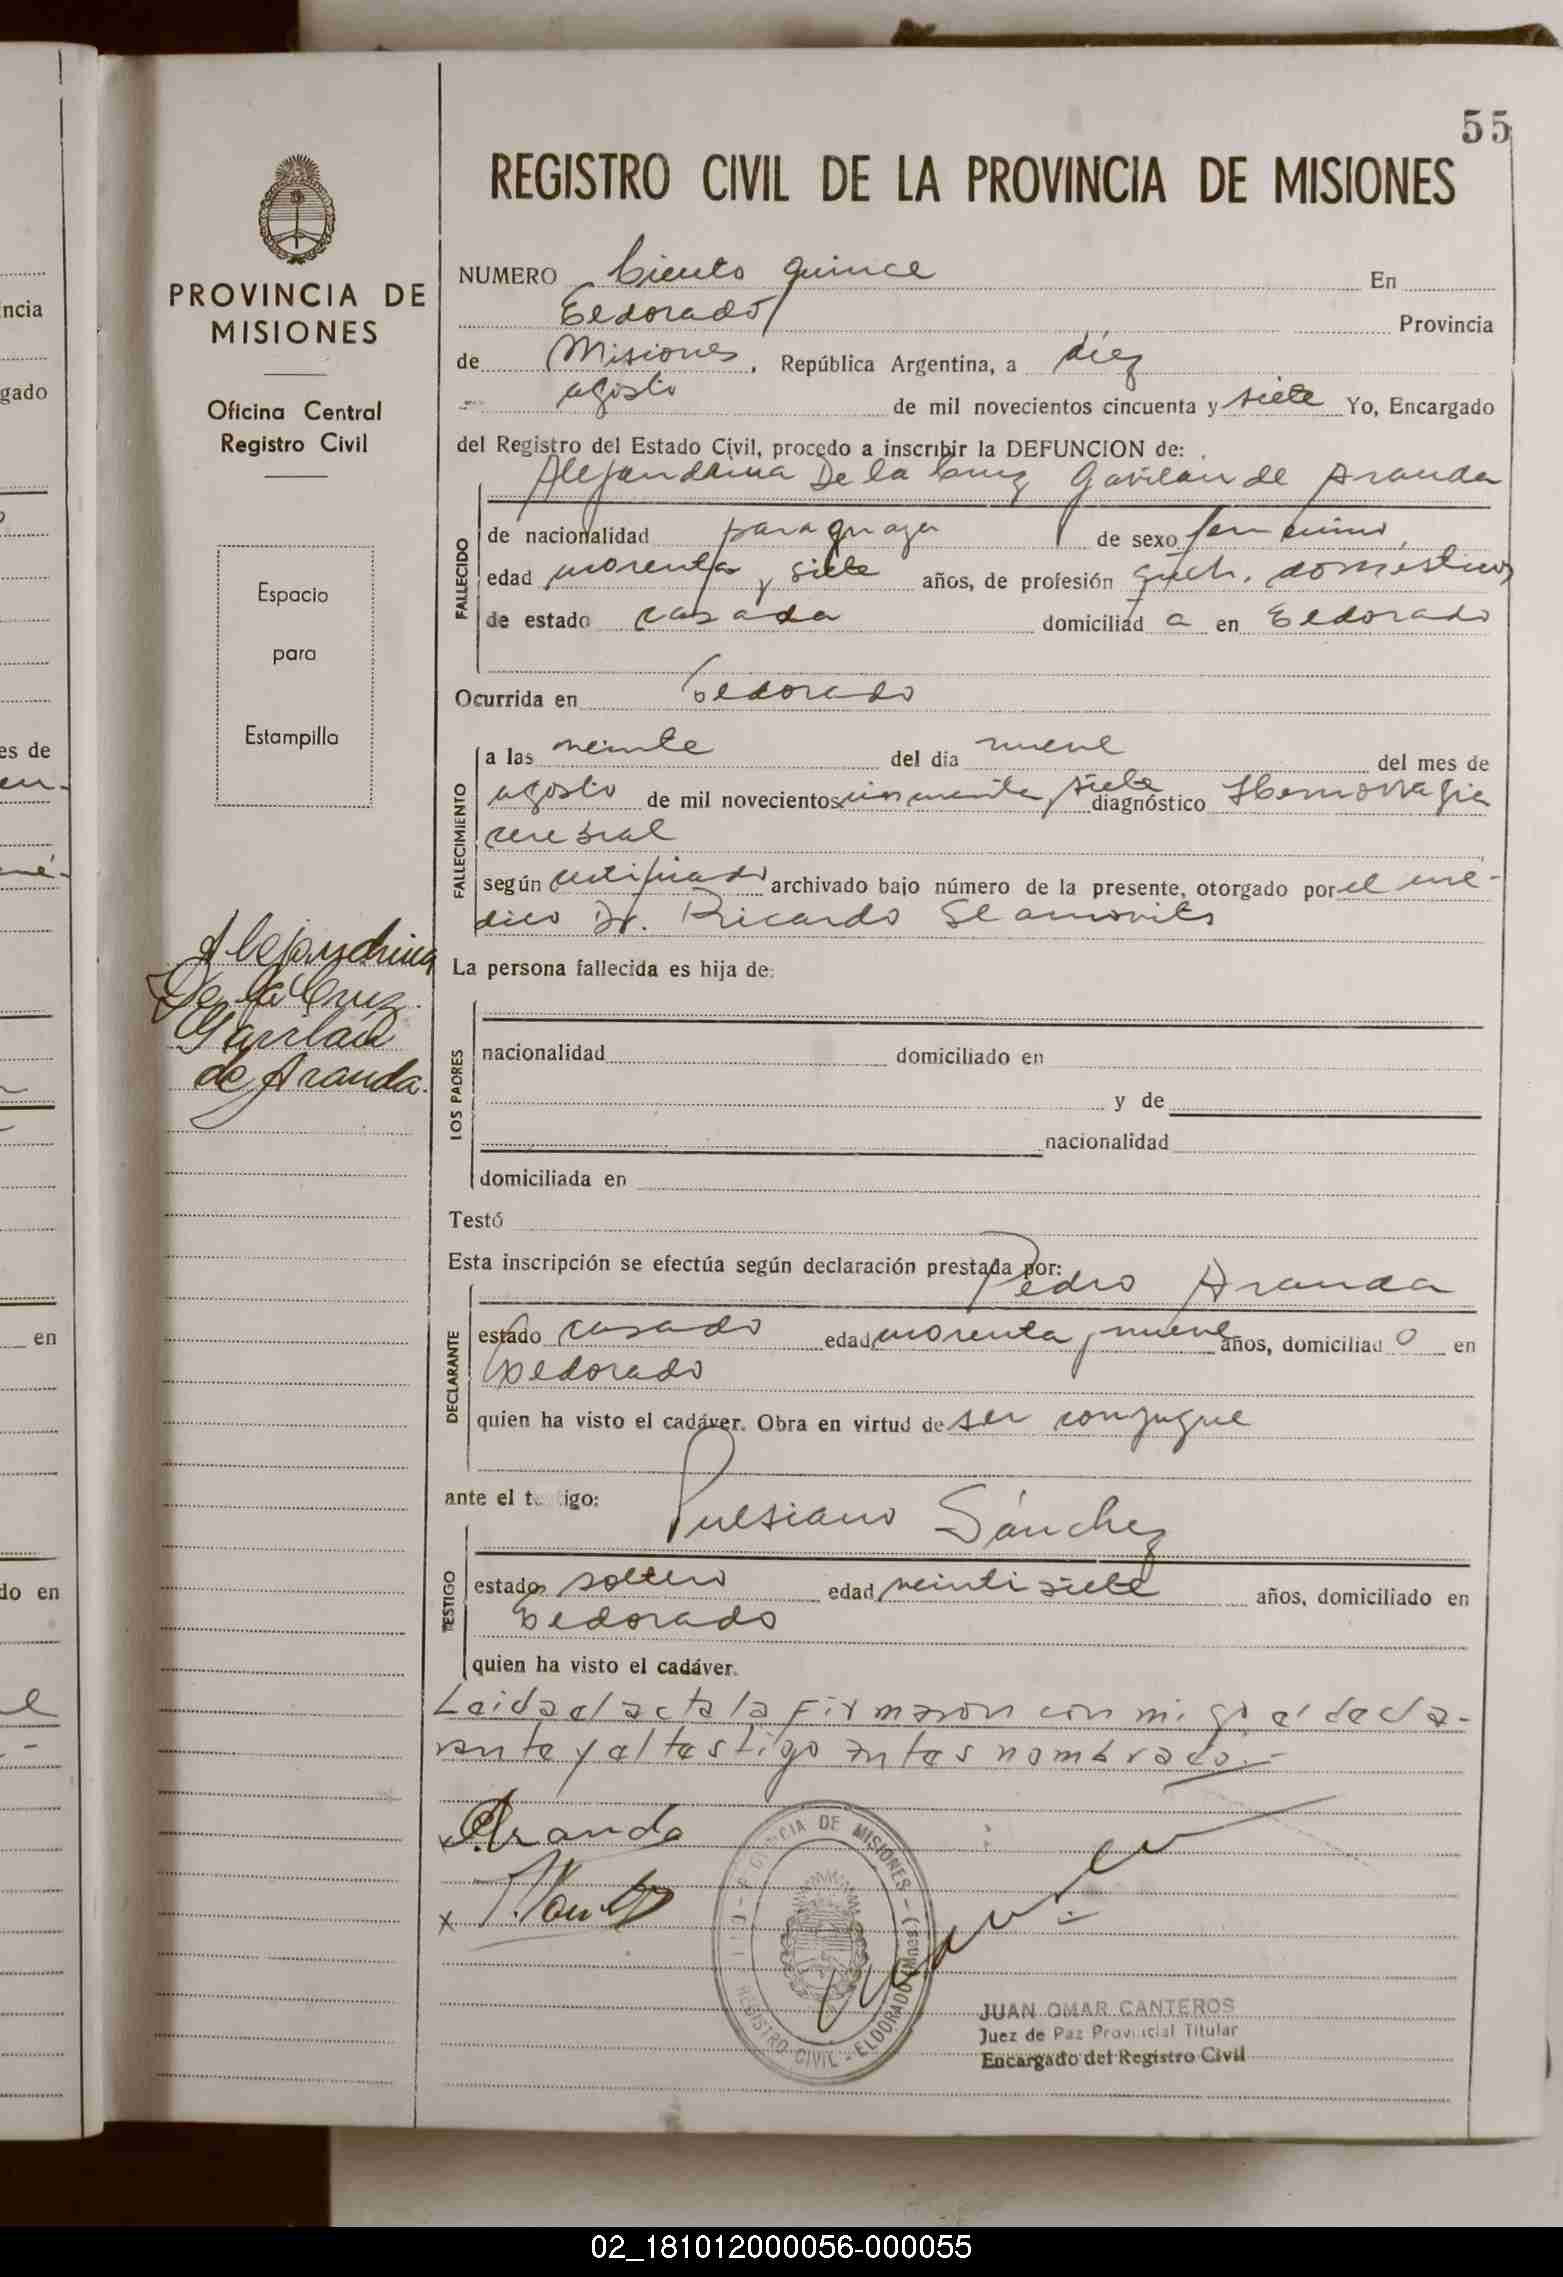 55
REGISTRO CIVIL DE LA PROVINCIA DE MISIONES
PROVINCIA DE
MISIONES
Oficina Central
Registro Civil
Espacio
para
Estampilla
Alejandrina
De la Cruz
Gavilan
de Aranda.
NUMERO Ciento quince En
Eldorado Provincia
de Misiones, República Argentina, a diez
agosto de mil novecientos cincuenta y siete Yo, Encargado
del Registro del Estado Civil, procedo a inscribir la DEFUNCION de:
Alejandrina De la Cruz Gavilan de Aranda
FALLECIDO
de nacionalidad paraguaya de sexo femenino,
edad cuarenta y siete años, de profesión queh. domesticos
de estado casada domiciliad a en Eldorado
Ocurrida en Eldorado
FALLECIMIENTO
a las veinte del dia nueve del mes de
agosto de mil novecientos cincuenta y siete diagnóstico Hemorragia
cerebral
según certificado archivado bajo número de la presente, otorgado por el mé-
dico Dr. Ricardo
La persona fallecida es hija de:
LOS PADRES
nacionalidad domiciliado en
y de
nacionalidad
domiciliada en
Testó
Esta inscripción se efectúa según declaración prestada por:
Pedro Aranda
DECLARANTE
estado casado edad cuarenta y nueve años, domiciliad o en
Eldorado
quien ha visto el cadáver. Obra en virtud de ser conyugue
ante el testigo:
Pulsiano Sánchez
TESTIGO
estado soltero edad veintisiete años, domiciliado en
Eldorado
quien ha visto el cadáver.
Leida el acta la firmaron conmigo el decla-
rante y el testigo antes nombrado.-
x Aranda
x
PROVINCIA DE MISIONES
REGISTRO CIVIL - ELDORADO (Mnes)
JUAN OMAR CANTEROS
Juez de Paz Provincial Titular
Encargado del Registro Civil
ncia
gado
es de
en
do en
02_181012000056-000055